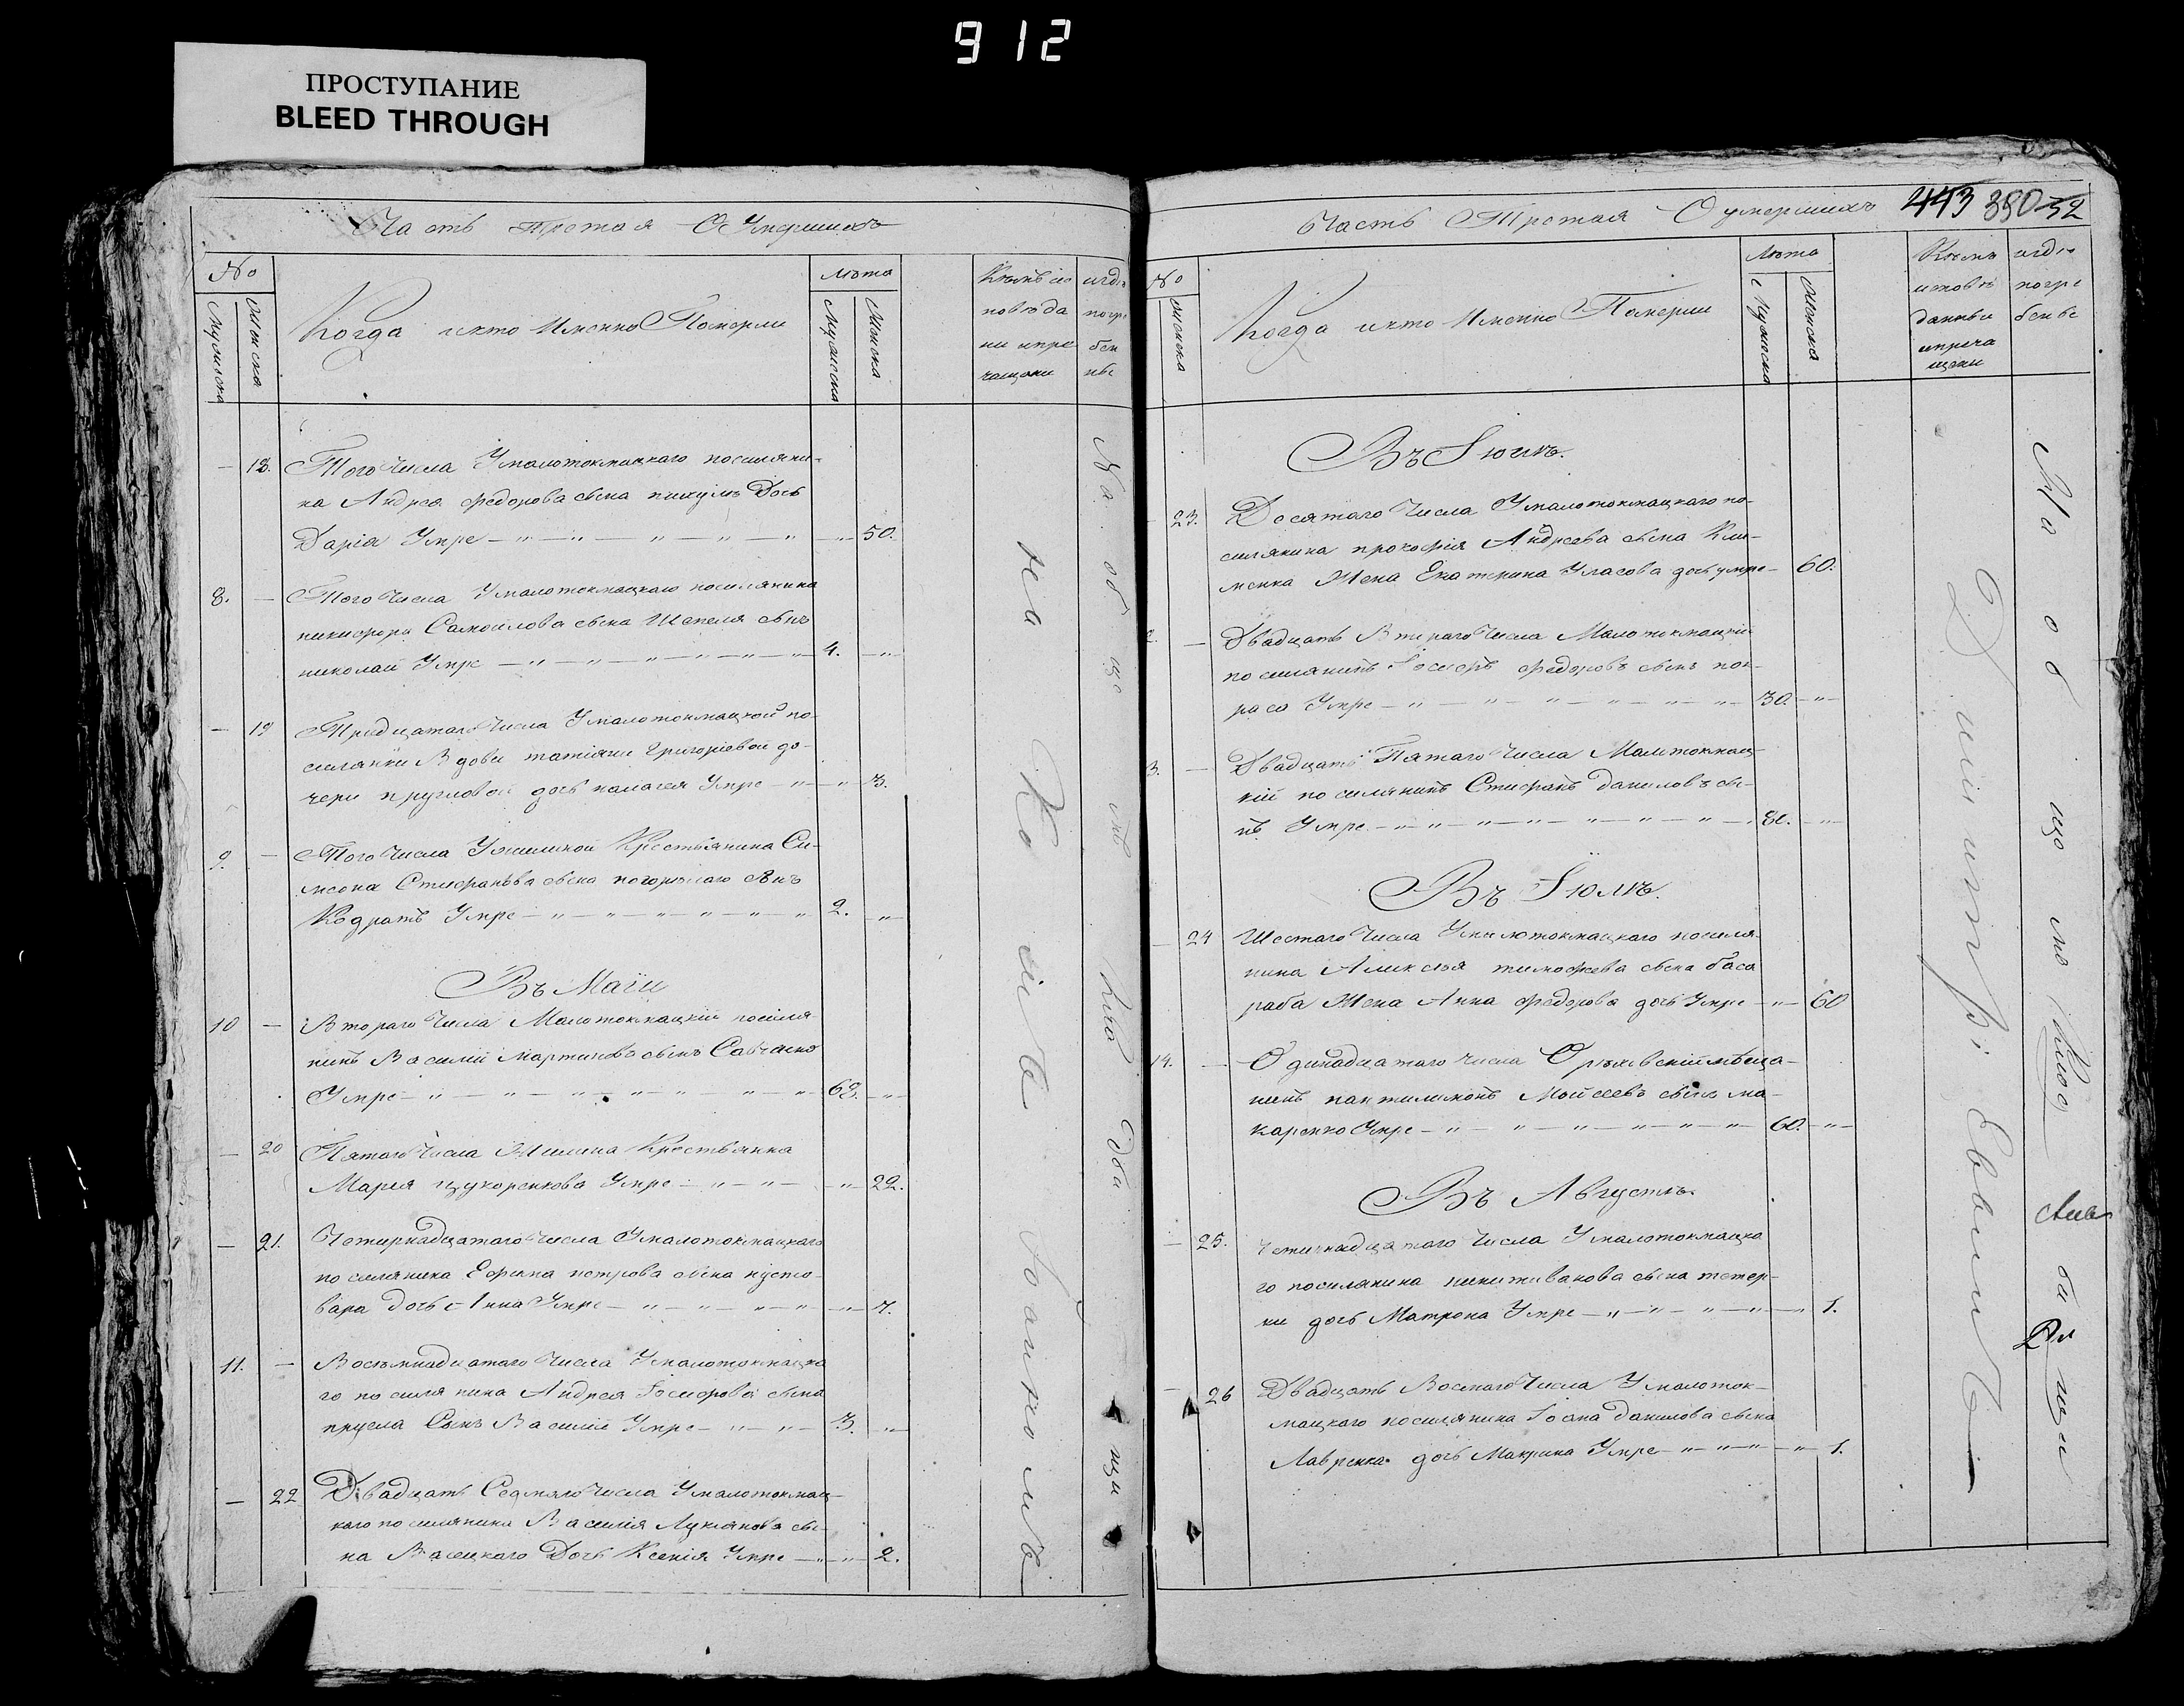 912
ПРОСТУПАНИЕ
BLEED THROUGH
Часть третая О Умершихъ
№
Мужиска
Женска
Когда и кто Именно Померли
лѣта
Мужиска
Женска
Кѣмъ ис
повѣда
ни и при
чащени
и гдѣ
погре
бен
ны
— 18. Того Числа Умалотокмацкаго поселяни-
на Андрея Федорова сына пихуля Дочь
Дарія Умре — 50.
8. — Того Числа Умалотокмацкаго поселянина
никифора Самойлова сына Шепеля сынъ
николай Умре — 4.
— 19 Тридцатаго Числа Умалотокмацкой по-
селянки Вдови татіяни Григоріевой до-
чери кругловой дочь палагея Умре — 3.
9. — Того Числа Крестьянина Си-
меона Стефанова сына погорѣлаго сынъ
Кодратъ Умре — 2.
Въ Маіи
10 — Втораго Числа Малотокмацкій поселя-
нинъ Василій Мартиновъ сынъ Савченко
Умре — 62.
— 20 Пятаго Числа Крестьянка
Марія цукоренкова Умре — 22.
— 21. Четирнадцатаго Числа Умалотокмацкаго
поселянина Ефима петрова сына пусто-
вара дочь Анна Умре — 7.
11. — Восьмнадцатаго Числа Умалотокмацка
го поселянина Андрея Іосифова сына
Сынъ Василій Умре — 3.
— 22 Двадцать Седмаго Числа Умалотокмац-
каго поселянина Василія Лукянова сы-
на Васецкаго Дочь Ксенія Умре — 2.
На об що мъ
Іоанномъ
Часть Третая О умершихъ
443 390 52
№
Женска
Когда и кто Именно Померли
Лѣта
Мужиска
Женска
Кѣмъ
исповѣ
данны
и прича
щени
и гдѣ
погре
бены
Въ Іюнѣ.
— 23. Десятаго Числа Умалотокмацкаго по-
селянина прокофія Андреева сына Кли-
менка Жена Екатерина Уласова дочь умре — 60.
2. — Двадцать Втораго Числа Малотокмацкій
поселянинъ Іосифъ Федоровъ сынъ пок-
раса Умре — 30.
3. — Двадцать Пятаго Числа Малотокмац-
кій поселянинъ Стефанъ даниловъ сы-
нъ Умре —
Въ Іюлѣ.
— 24 Шестаго Числа Умалотокмацкаго поселя-
нина Алексѣя тимофѣева сына баса
раба Жена Анна Федорова дочь Умре — 60
14. — Одинадцатаго числа Орѣховскій мѣща-
нинъ пантилимонъ Мойсеевъ сынъ ма-
каренко Умре — 60.
Въ Августѣ.
— 25. Четирнадцатаго Числа Умалотокмацка
го поселянина никити иванова сына тетер-
ки дочь Матрона Умре — 1.
— 26 Двадцать Восмаго Числа Умалоток-
мацкаго поселянина Іоана данилова сына
Лавренка дочь Макрина Умре — 1.
На об що мъ